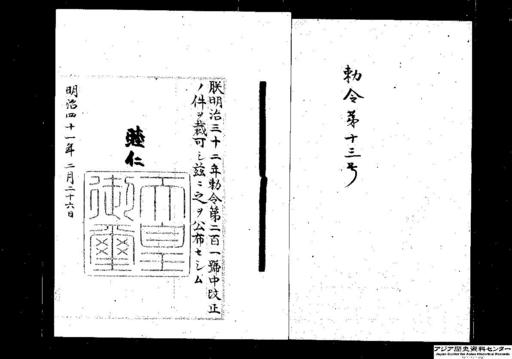 勅令第十三号
朕明治三十二年勅令第二百一號中改正
ノ件ヲ裁可シ茲ニ之ヲ公布セシム
睦仁
天皇御璽
明治四十一年二月二十六日
アジア歴史資料センター
Japan Center for Asian Historical Records